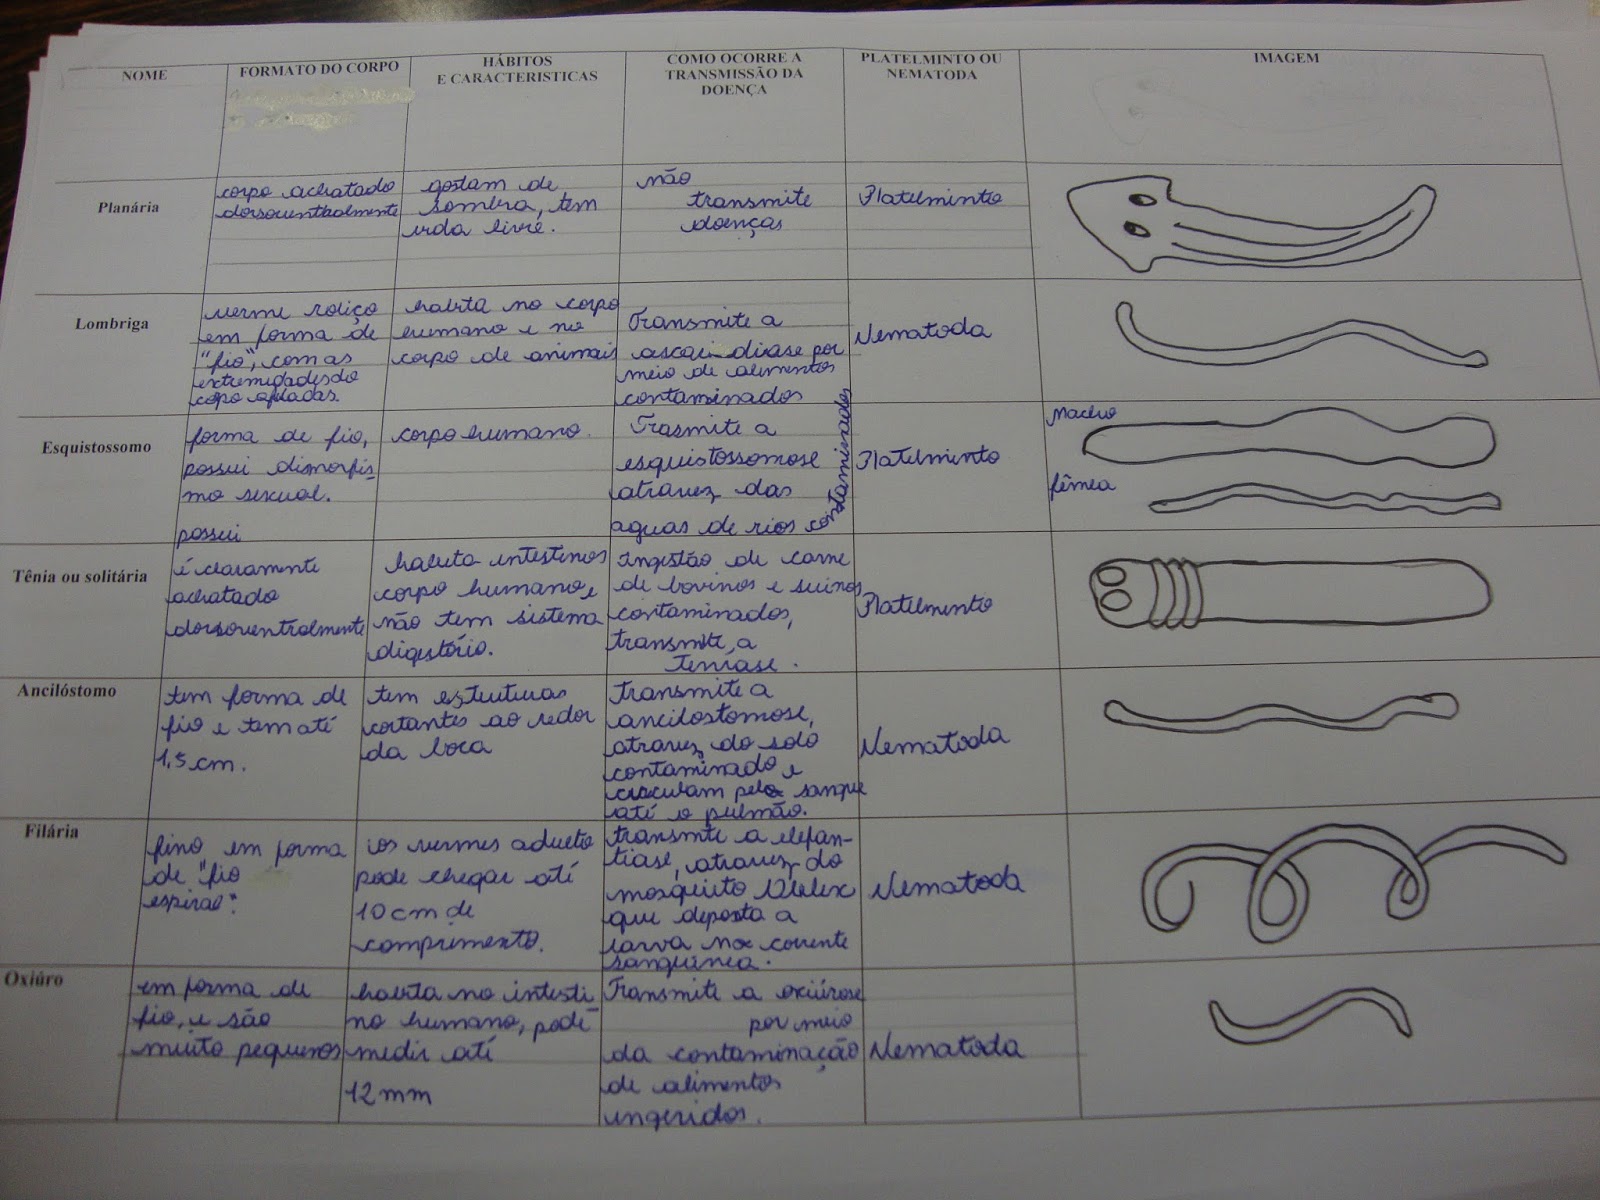 NOME
FORMATO DO CORPO
HÁBITOS
E CARACTERISTICAS
COMO OCORRE A
TRANSMISSÃO DA
DOENÇA
PLATELMINTO OU
NEMATODA
IMAGEM
Planária
corpo achatado
dorsoventralmente
gostam de
sombra, tem
vida livre.
não
transmite
doenças
Platelminto
Lombriga
verme roliço
em forma de
"fio", com as
extremidades do
copo afiladas.
habita no corpo
humano e no
corpo de animais
Transmite a
ascaridiase por
meio de alimentos
contaminados
Nematoda
Esquistossomo
forma de fio,
possui dimorfis
mo sexual.
possui
corpo humano.
Trasmite a
esquistossomose
atravez das
aguas de rios contaminados
Platelminto
Macho
fêmea
Tênia ou solitária
é claramente
achatado
dorsoventralmente
habita intestinos
corpo humano, e
não tem sistema
digestório.
Ingestão de carne
de bovinos e suinos
contaminados,
transmite, a
Teniase.
Platelminto
Ancilóstomo
tem forma de
fio e tem até
1,5 cm.
tem estruturas
cortantes ao redor
da boca
transmite a
ancilostomose,
atravez do solo
contaminado e
circulam pelo sangue
até o pulmão.
Nematoda
Filária
fino em forma
de "fio
espiral".
os vermes adulto
pode chegar até
10 cm de
comprimento.
transmite a elefan-
tiase, atravez do
mosquito Culex
que deposta a
larva na corrente
sanguínea.
Nematoda
Oxiúro
em forma de
fio, e são
muito pequenos
habita no intesti
no humano, pode
medir até
12 mm
Transmite a oxiúrose
por meio
da contaminação
de alimentos
ingeridos.
Nematoda